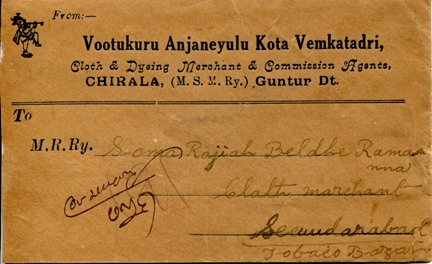 From:—
Vootukuru Anjaneyulu Kota Vemkatadri,
Cloth & Dyeing Merchant & Commission Agents,
CHIRALA, (M. S. M. Ry.) Guntur Dt.
To
M.R.Ry. Soma Rajiah Beldhe Rama
nna
Clath marchant
Secundarabad
Tobaco Bazar